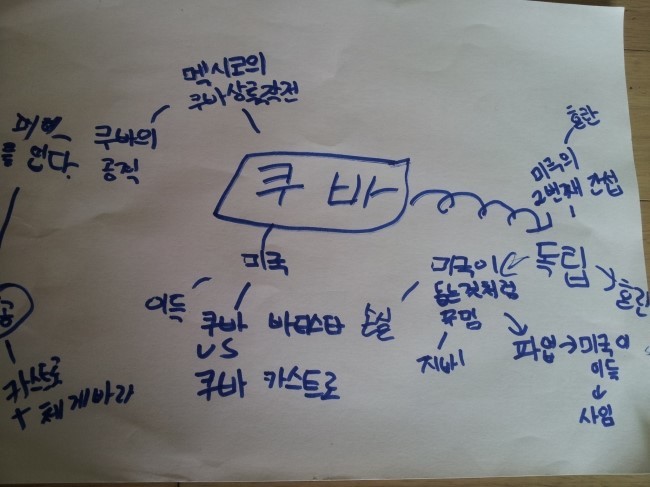 멕시코의
쿠바상륙작전
쿠바의
공직
쿠바
혼란
미국의
2번째 간섭
독립
혼란
미국이
돕는것처럼
꾸밈
지배
파업→미국이
이득
사임
미국
이득
손실
쿠바 바티스타
VS
쿠바 카스트로
카스트로
+ 체 게바라